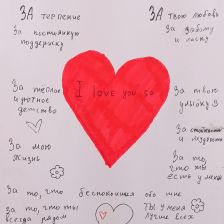 ЗА терпение
За постоянную
поддержку
За теплое
и уютное
детство
За мою
жизнь
За то, что беспокоишься обо мне
За то, что ты
всегда рядом
I love you so
ЗА твою любовь
За заботу
и ласку
За твою
улыбку
За
и мудрость
За то,
что ты
есть у меня
Ты у меня
лучше всех